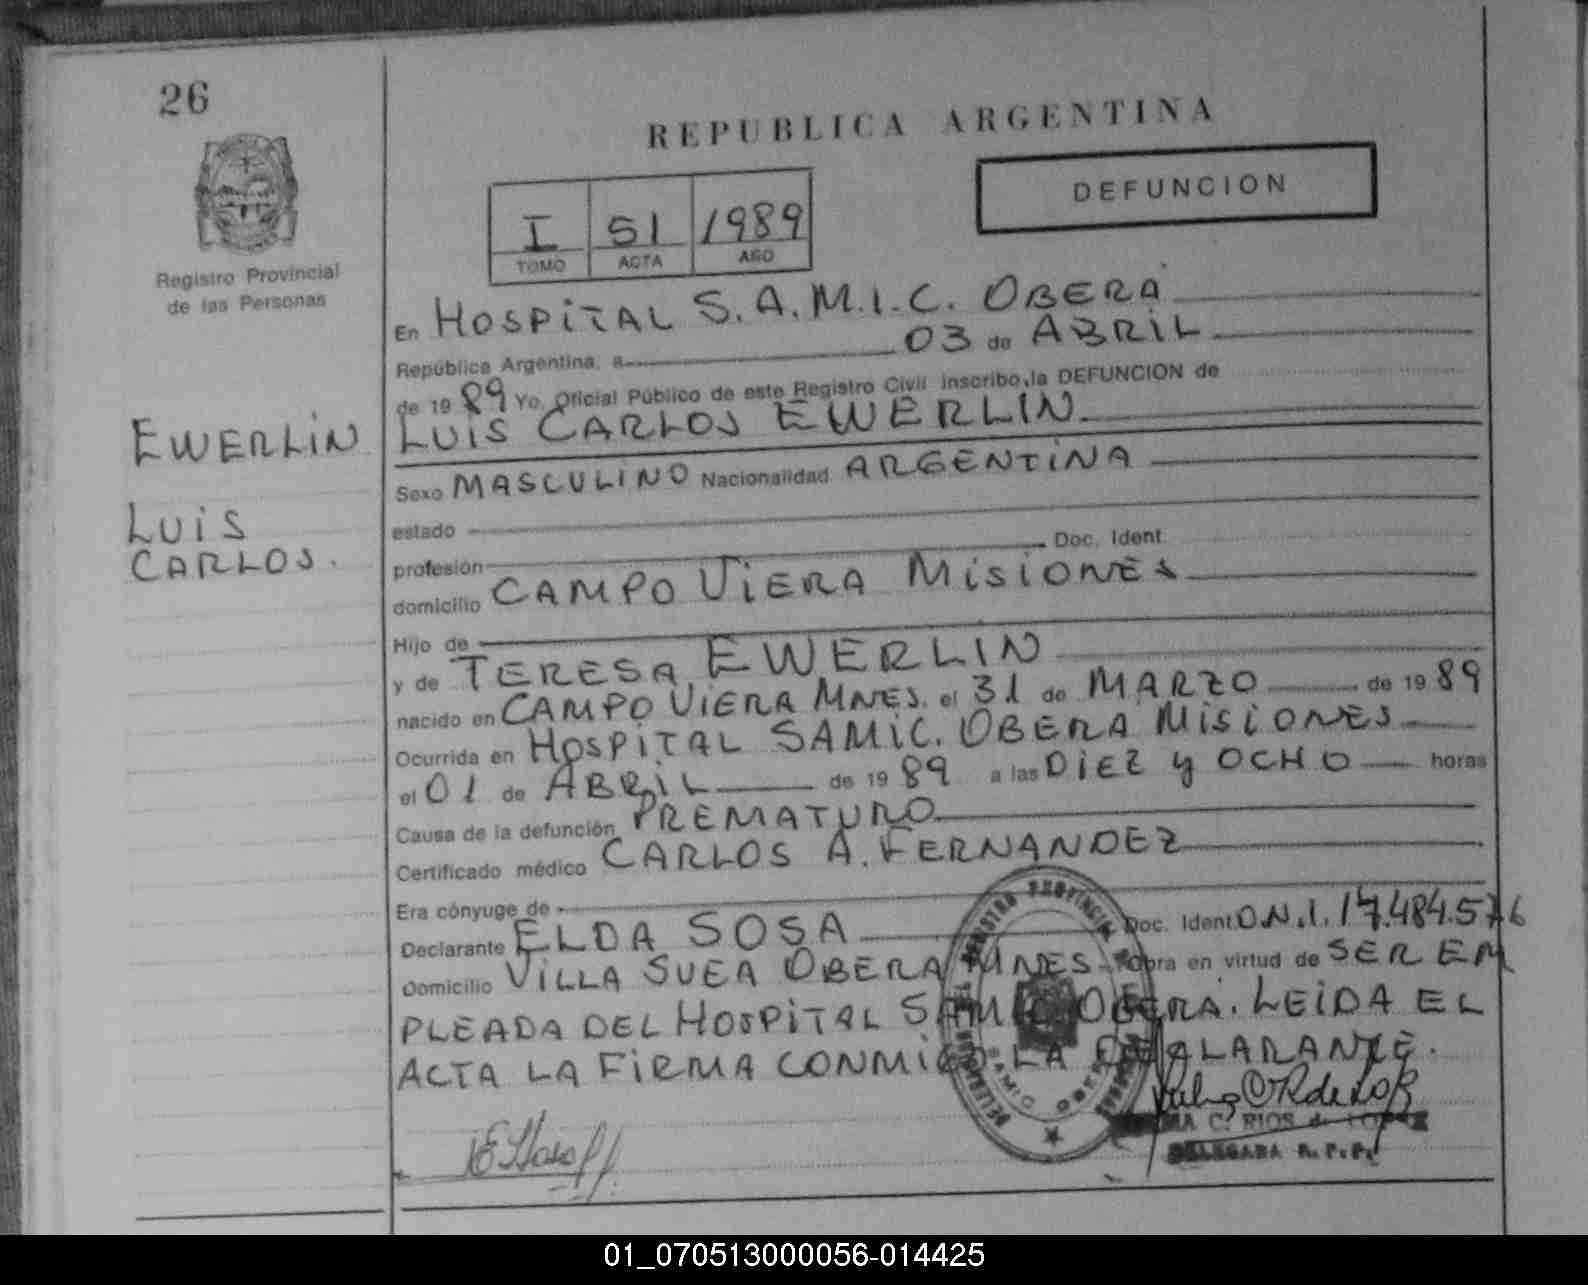 26
REPUBLICA ARGENTINA
DEFUNCION
I 51 1989
TOMO ACTA AÑO
Registro Provincial
de las Personas
En HOSPITAL S.A.M.I.C. OBERA
República Argentina, a 03 de ABRIL
de 1989 Yo, Oficial Público de este Registro Civil inscribo, la DEFUNCION de
EWERLIN
LUIS CARLOS EWERLIN
Sexo MASCULINO Nacionalidad ARGENTINA
LUIS
estado
CARLOS.
profesión Doc. Ident.
domicilio CAMPO VIERA MISIONES
Hijo de
y de TERESA EWERLIN
nacido en CAMPO VIERA MNES. el 31 de MARZO de 1989
Ocurrida en HOSPITAL SAMIC. OBERA MISIONES
el 01 de ABRIL de 1989 a las DIEZ y OCHO horas
Causa de la defunción PREMATURO
Certificado médico CARLOS A. FERNANDEZ
Era cónyuge de
Declarante ELDA SOSA Doc. Ident D.N.I. 17.484.576
Domicilio VILLA SUEA OBERA MNES Obra en virtud de SER EM
PLEADA DEL HOSPITAL SAMIC OBERA. LEIDA EL
ACTA LA FIRMA CONMIGO LA DECLARANTE.
DELEGADA R.P.P.
SAMIC OBERA
01_070513000056-014425